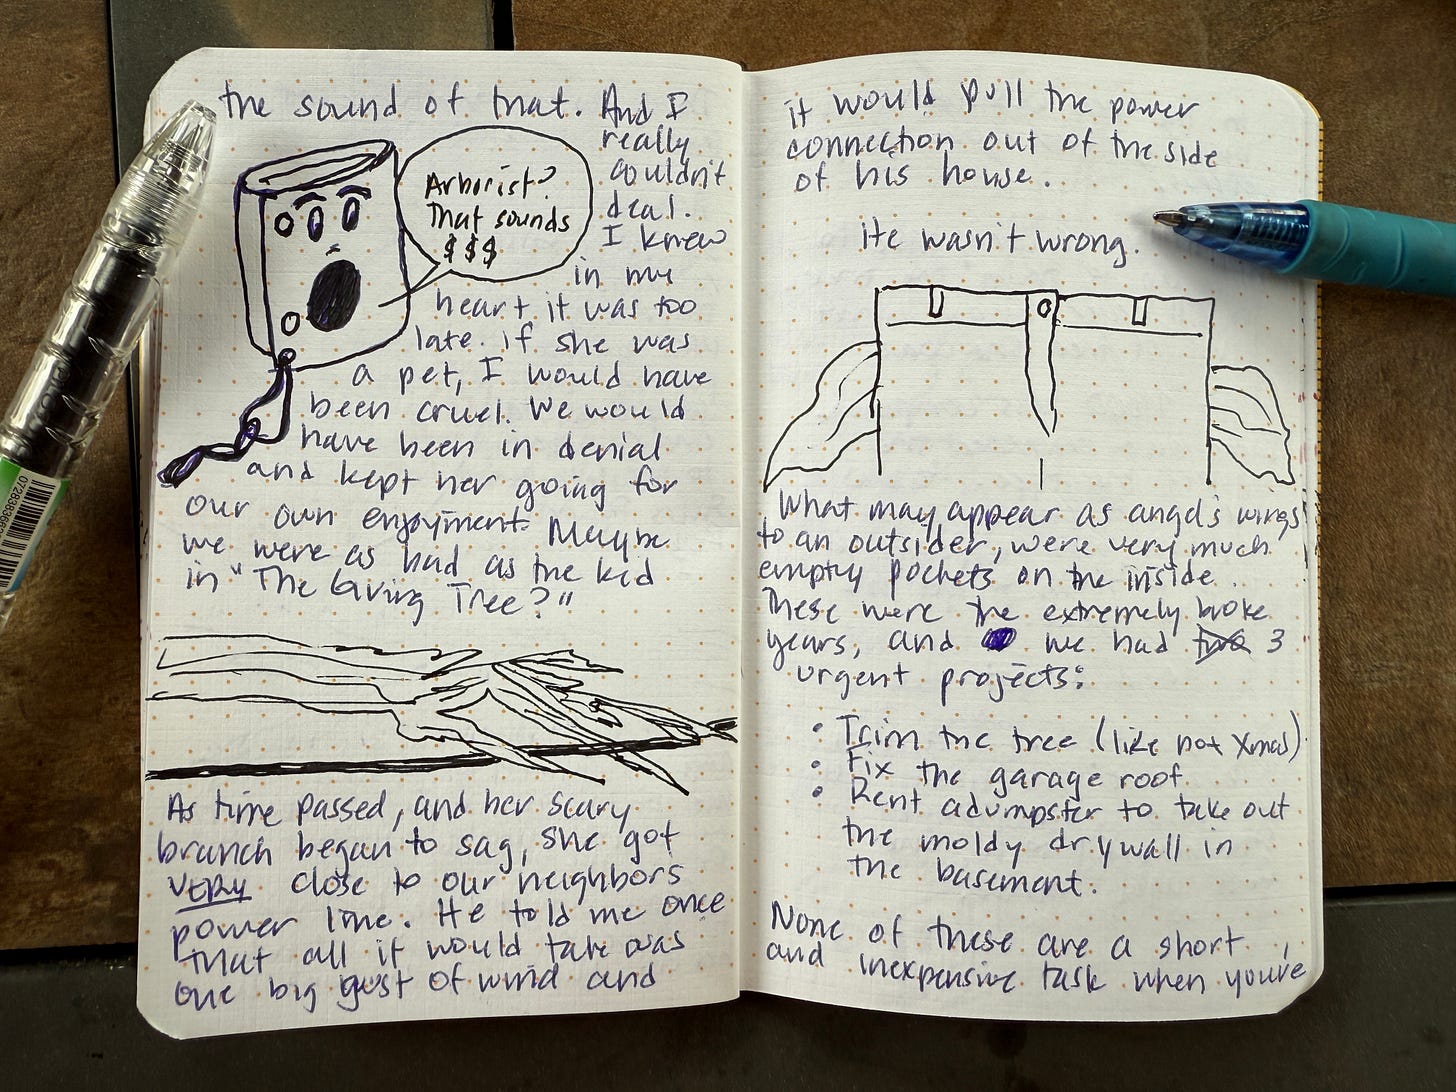 the sound of that. And I
really
couldn't
deal.
I knew
in my
heart it was too
late. if she was
a pet, I would have
been cruel. We would
have been in denial
and kept her going for
our own enjoyment. Maybe
we were as bad as the kid
in "The Giving Tree?"
Arborist?
That sounds
$$$
As time passed, and her scary
branch began to sag, she got
very close to our neighbors
power line. He told me once
that all it would take was
one big gust of wind and
it would pull the power
connection out of the side
of his house.
He wasn't wrong.
What may appear as angel's wings
to an outsider, were very much
empty pockets on the inside.
These were the extremely broke
years, and we had two 3
urgent projects:
• Trim the tree (like not Xmas)
• Fix the garage roof
• Rent a dumpster to take out
the moldy drywall in
the basement.
None of these are a short
and inexpensive task when you're